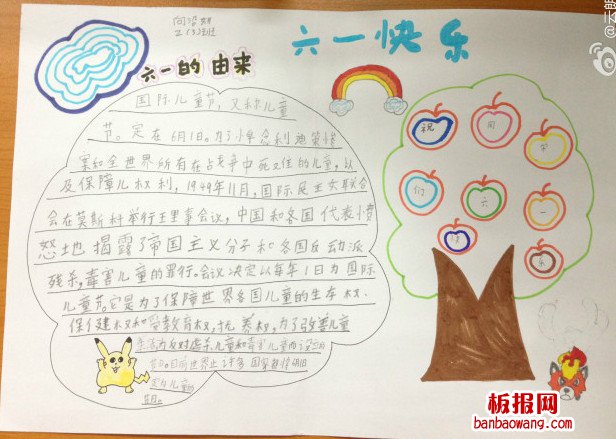 2(3)班
六一快乐
六一的由来
国际儿童节,又称儿童
节。定在6月1日。为了悼念利迪策惨
案和全世界所有在战争中死难的儿童,以
及保障儿权利,1949年11月,国际民主妇联合会
会在莫斯科举行理事会议,中国和各国代表愤
怒地揭露了帝国主义分子和各国反动派
残杀,毒害儿童的罪行。会议决定以每年1日为国际
儿童节。它是为了保障世界各国儿童的生存权、
保健权和受教育权,抚养权,为了改善儿童
生活为反对虐杀儿童和毒害儿童而设的
节日。目前世界上许多国家都将
定为儿童的
节日。
祝 同 学
们 六 一
快 乐
板报网
banbaowang.com